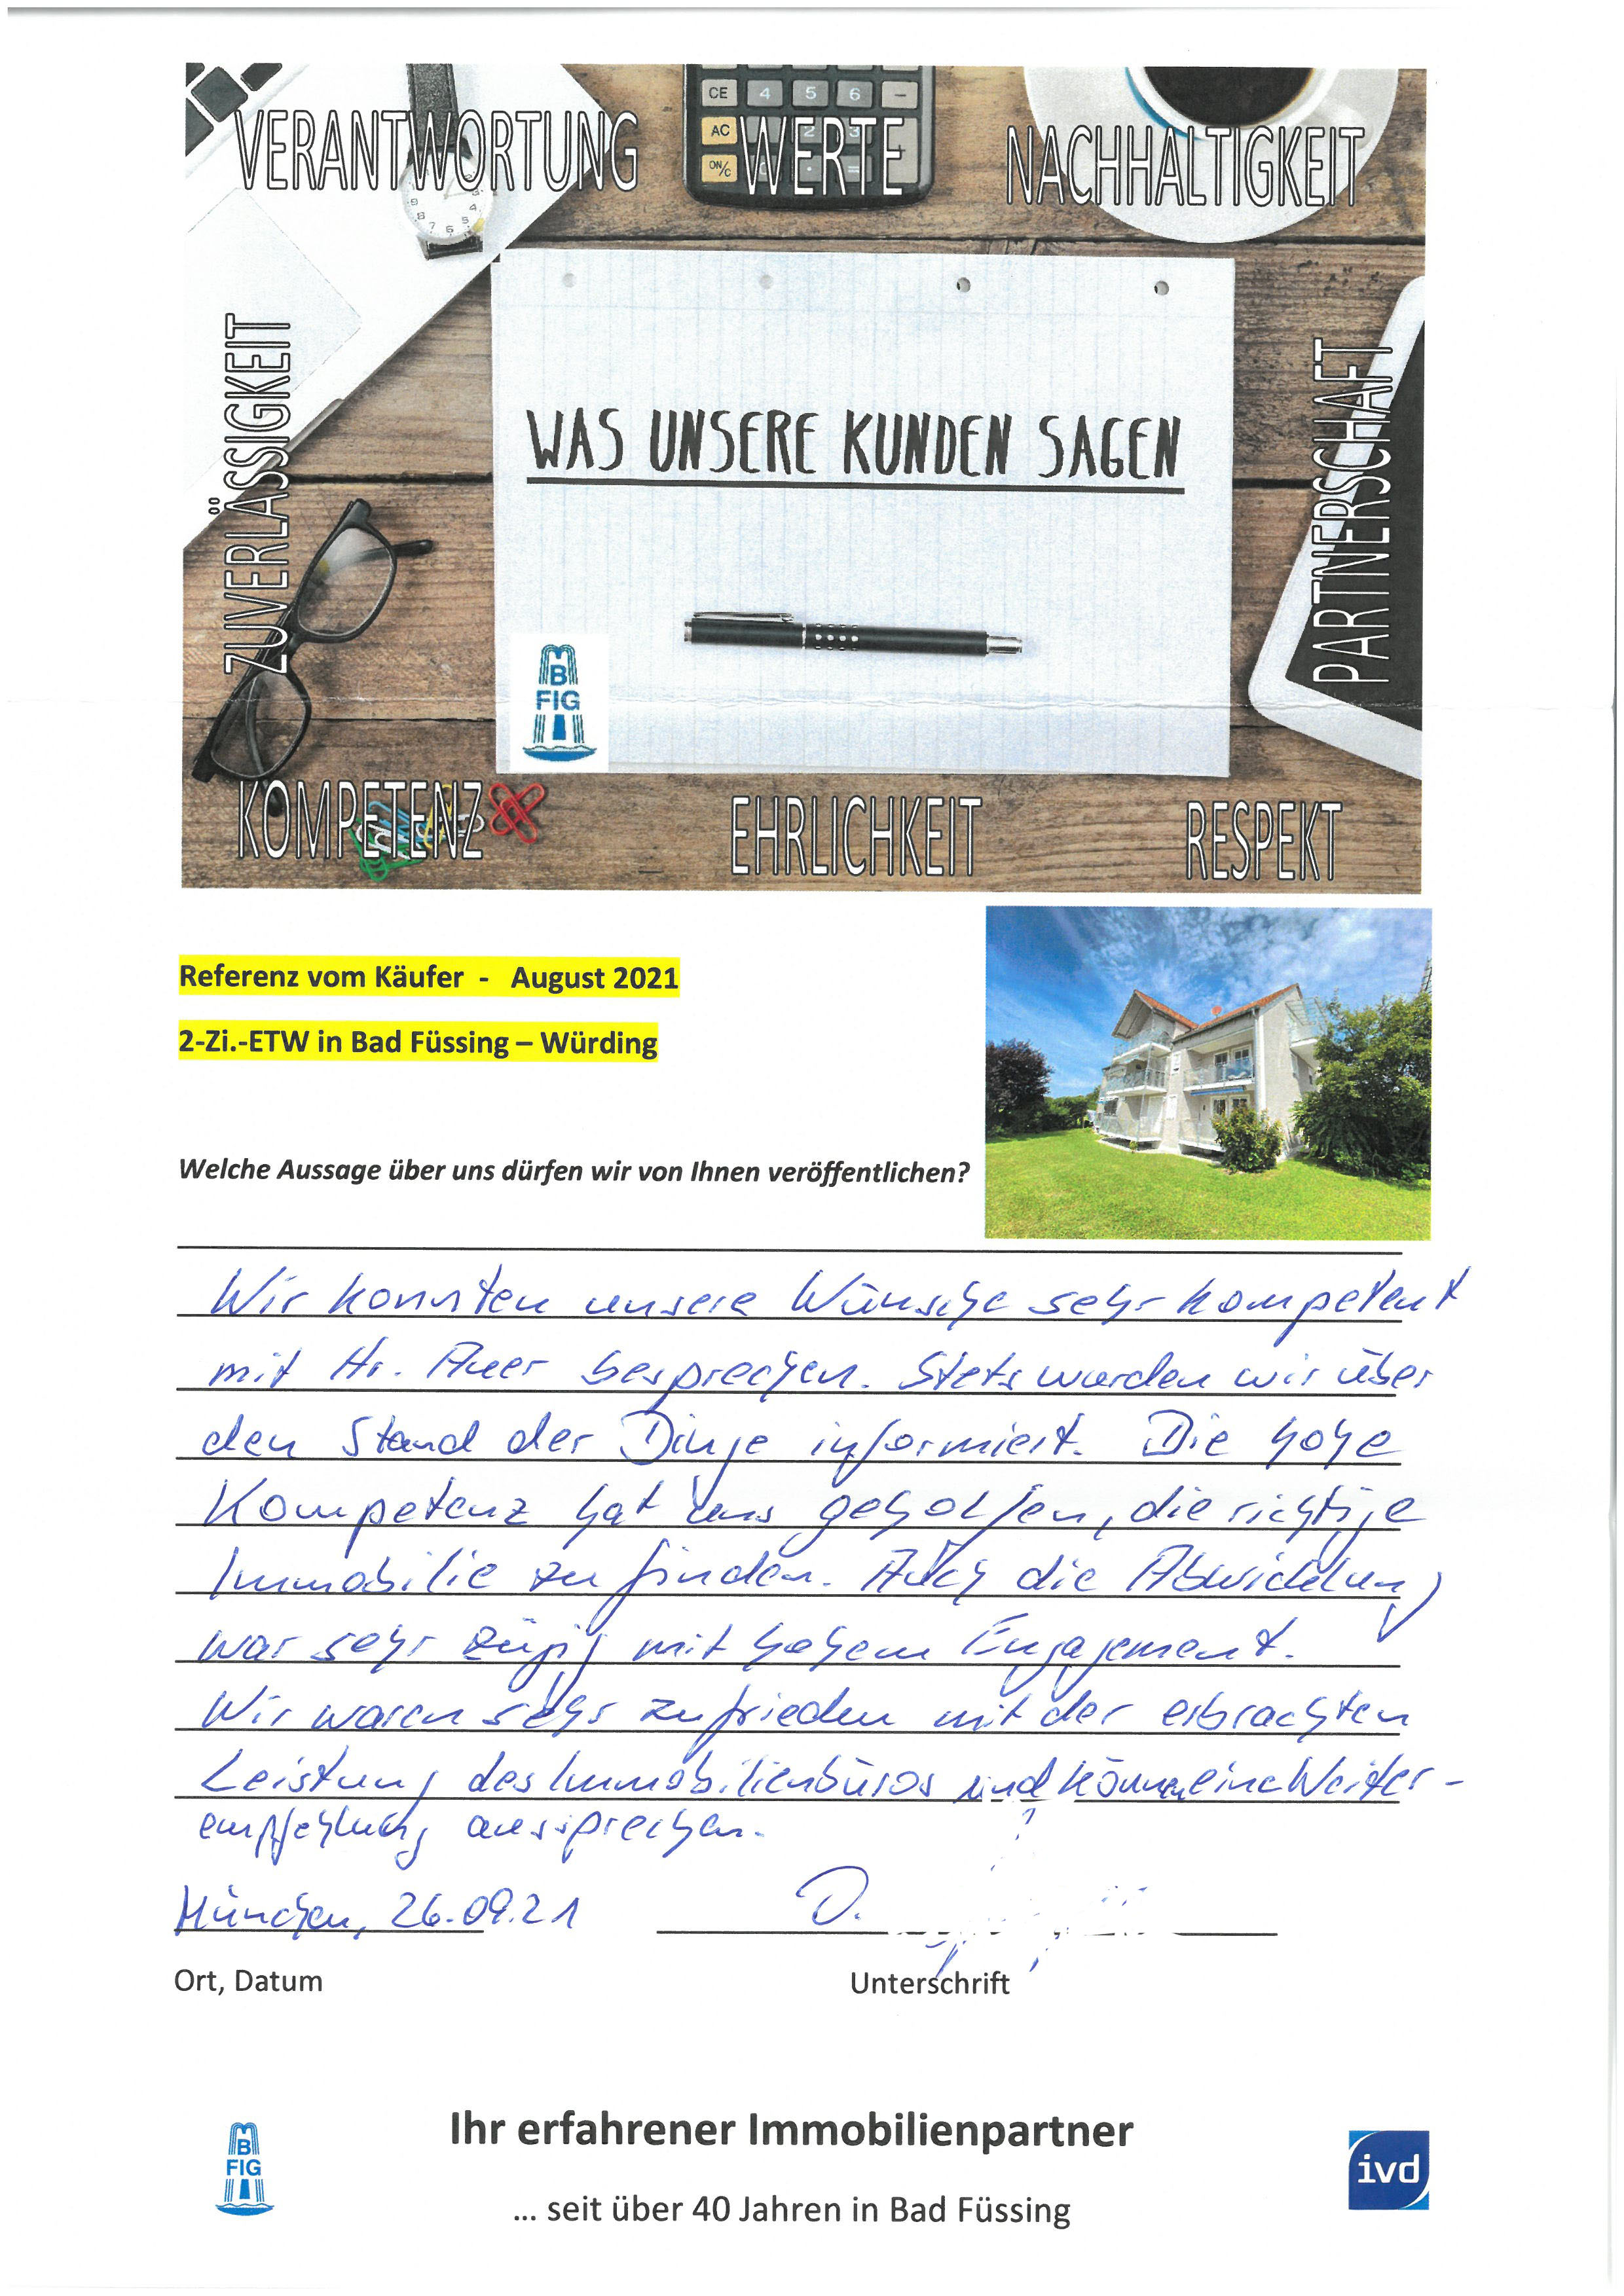 CE 4 5 6 –
AC 2 3
ON/C . =
VERANTWORTUNG WERTE NACHHALTIGKEIT
ZUVERLÄSSIGKEIT
WAS UNSERE KUNDEN SAGEN
PARTNERSCHAFT
B
FIG
KOMPETENZ EHRLICHKEIT RESPEKT
Referenz vom Käufer - August 2021
2-Zi.-ETW in Bad Füssing – Würding
Welche Aussage über uns dürfen wir von Ihnen veröffentlichen?
Wir konnten unsere Wünsche sehr kompetent
mit Hr. Auer besprechen. Stets wurden wir über
den Stand der Dinge informiert. Die hohe
Kompetenz hat uns geholfen, die richtige
Immobilie zu finden. Auch die Abwicklung
war sehr zügig mit hohem Engagement.
Wir waren sehr zufrieden mit der erbrachten
Leistung des Immobilienbüros und können eine Weiter-
empfehlung aussprechen.
München, 26.09.21 D.
Ort, Datum Unterschrift
Ihr erfahrener Immobilienpartner
B
FIG
ivd
... seit über 40 Jahren in Bad Füssing